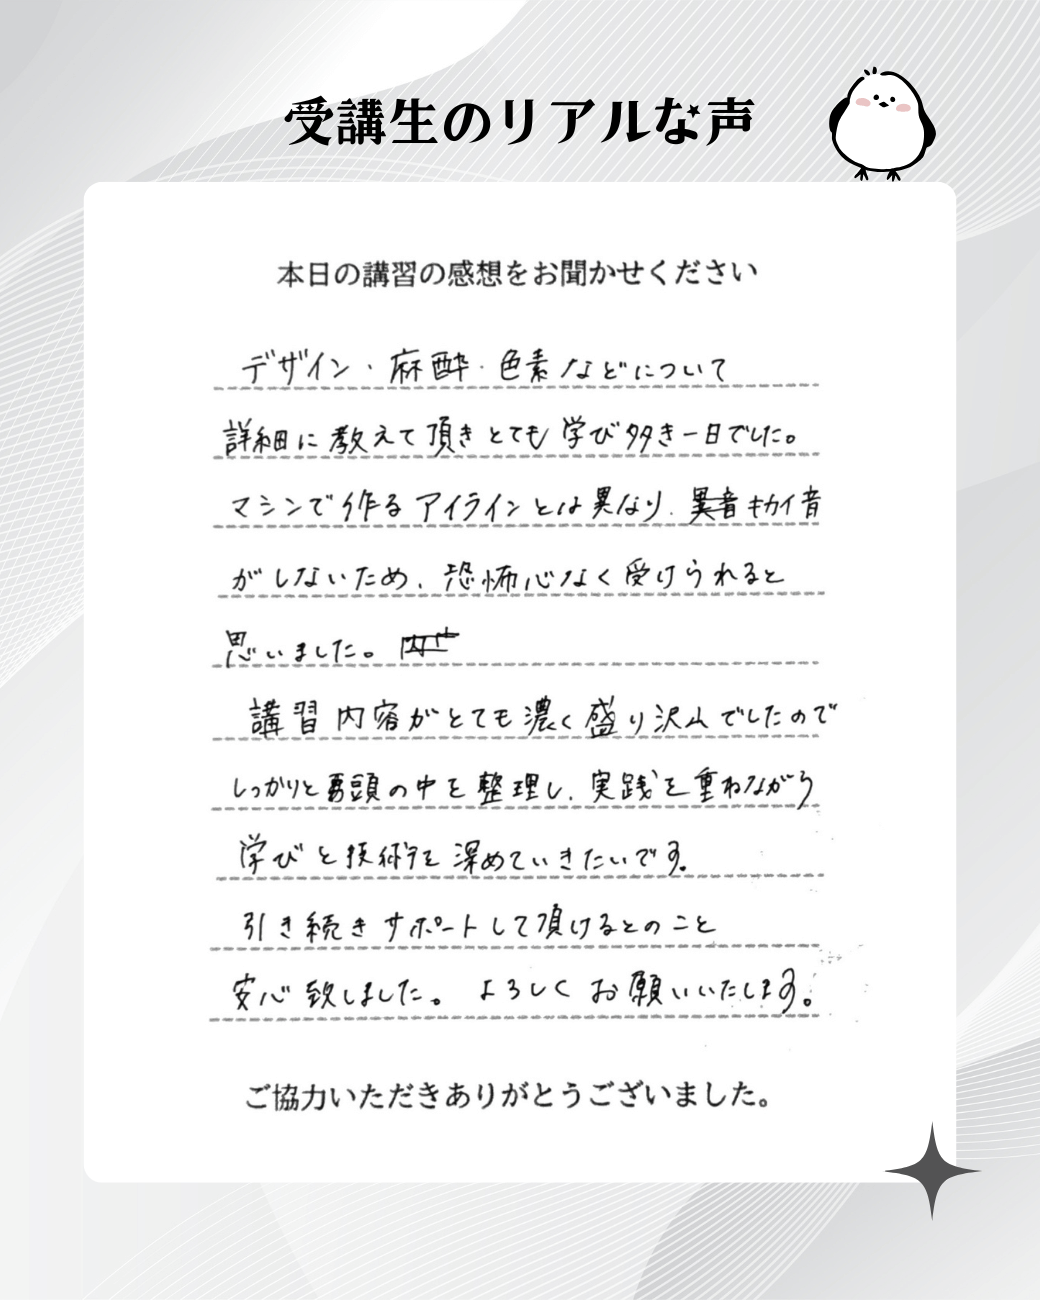 受講生のリアルな声
本日の講習の感想をお聞かせください
デザイン・麻酔・色素などについて
詳細に教えて頂きとても学び多き一日でした。
マシンで作るアイラインとは異なり、異音キカイ音
がしないため、恐怖心なく受けられると
思いました。
講習内容がとても濃く盛り沢山でしたので
しっかりと頭の中を整理し、実践を重ねながら
学びと技術を深めていきたいです。
引き続きサポートして頂けるとのこと
安心致しました。 よろしくお願いいたします。
ご協力いただきありがとうございました。